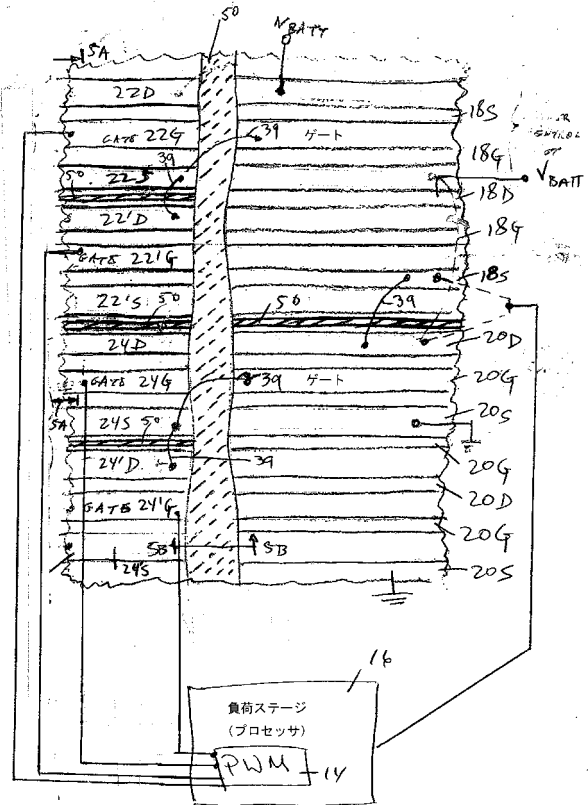 50
5A
VBATT
22D
18S
GATE 22G
39
ゲート
18G
39
50
22S
VBATT
18D
22'D
18G
GATE 22'G
18S
22'S
50
50
39
24D
20D
GATE 24G
39
ゲート
20G
5A
20S
24S
50
20G
24'D
39
20D
GATE 24'G
20G
5B
5B
24S
20S
16
負荷ステージ
(プロセッサ)
PWM
14